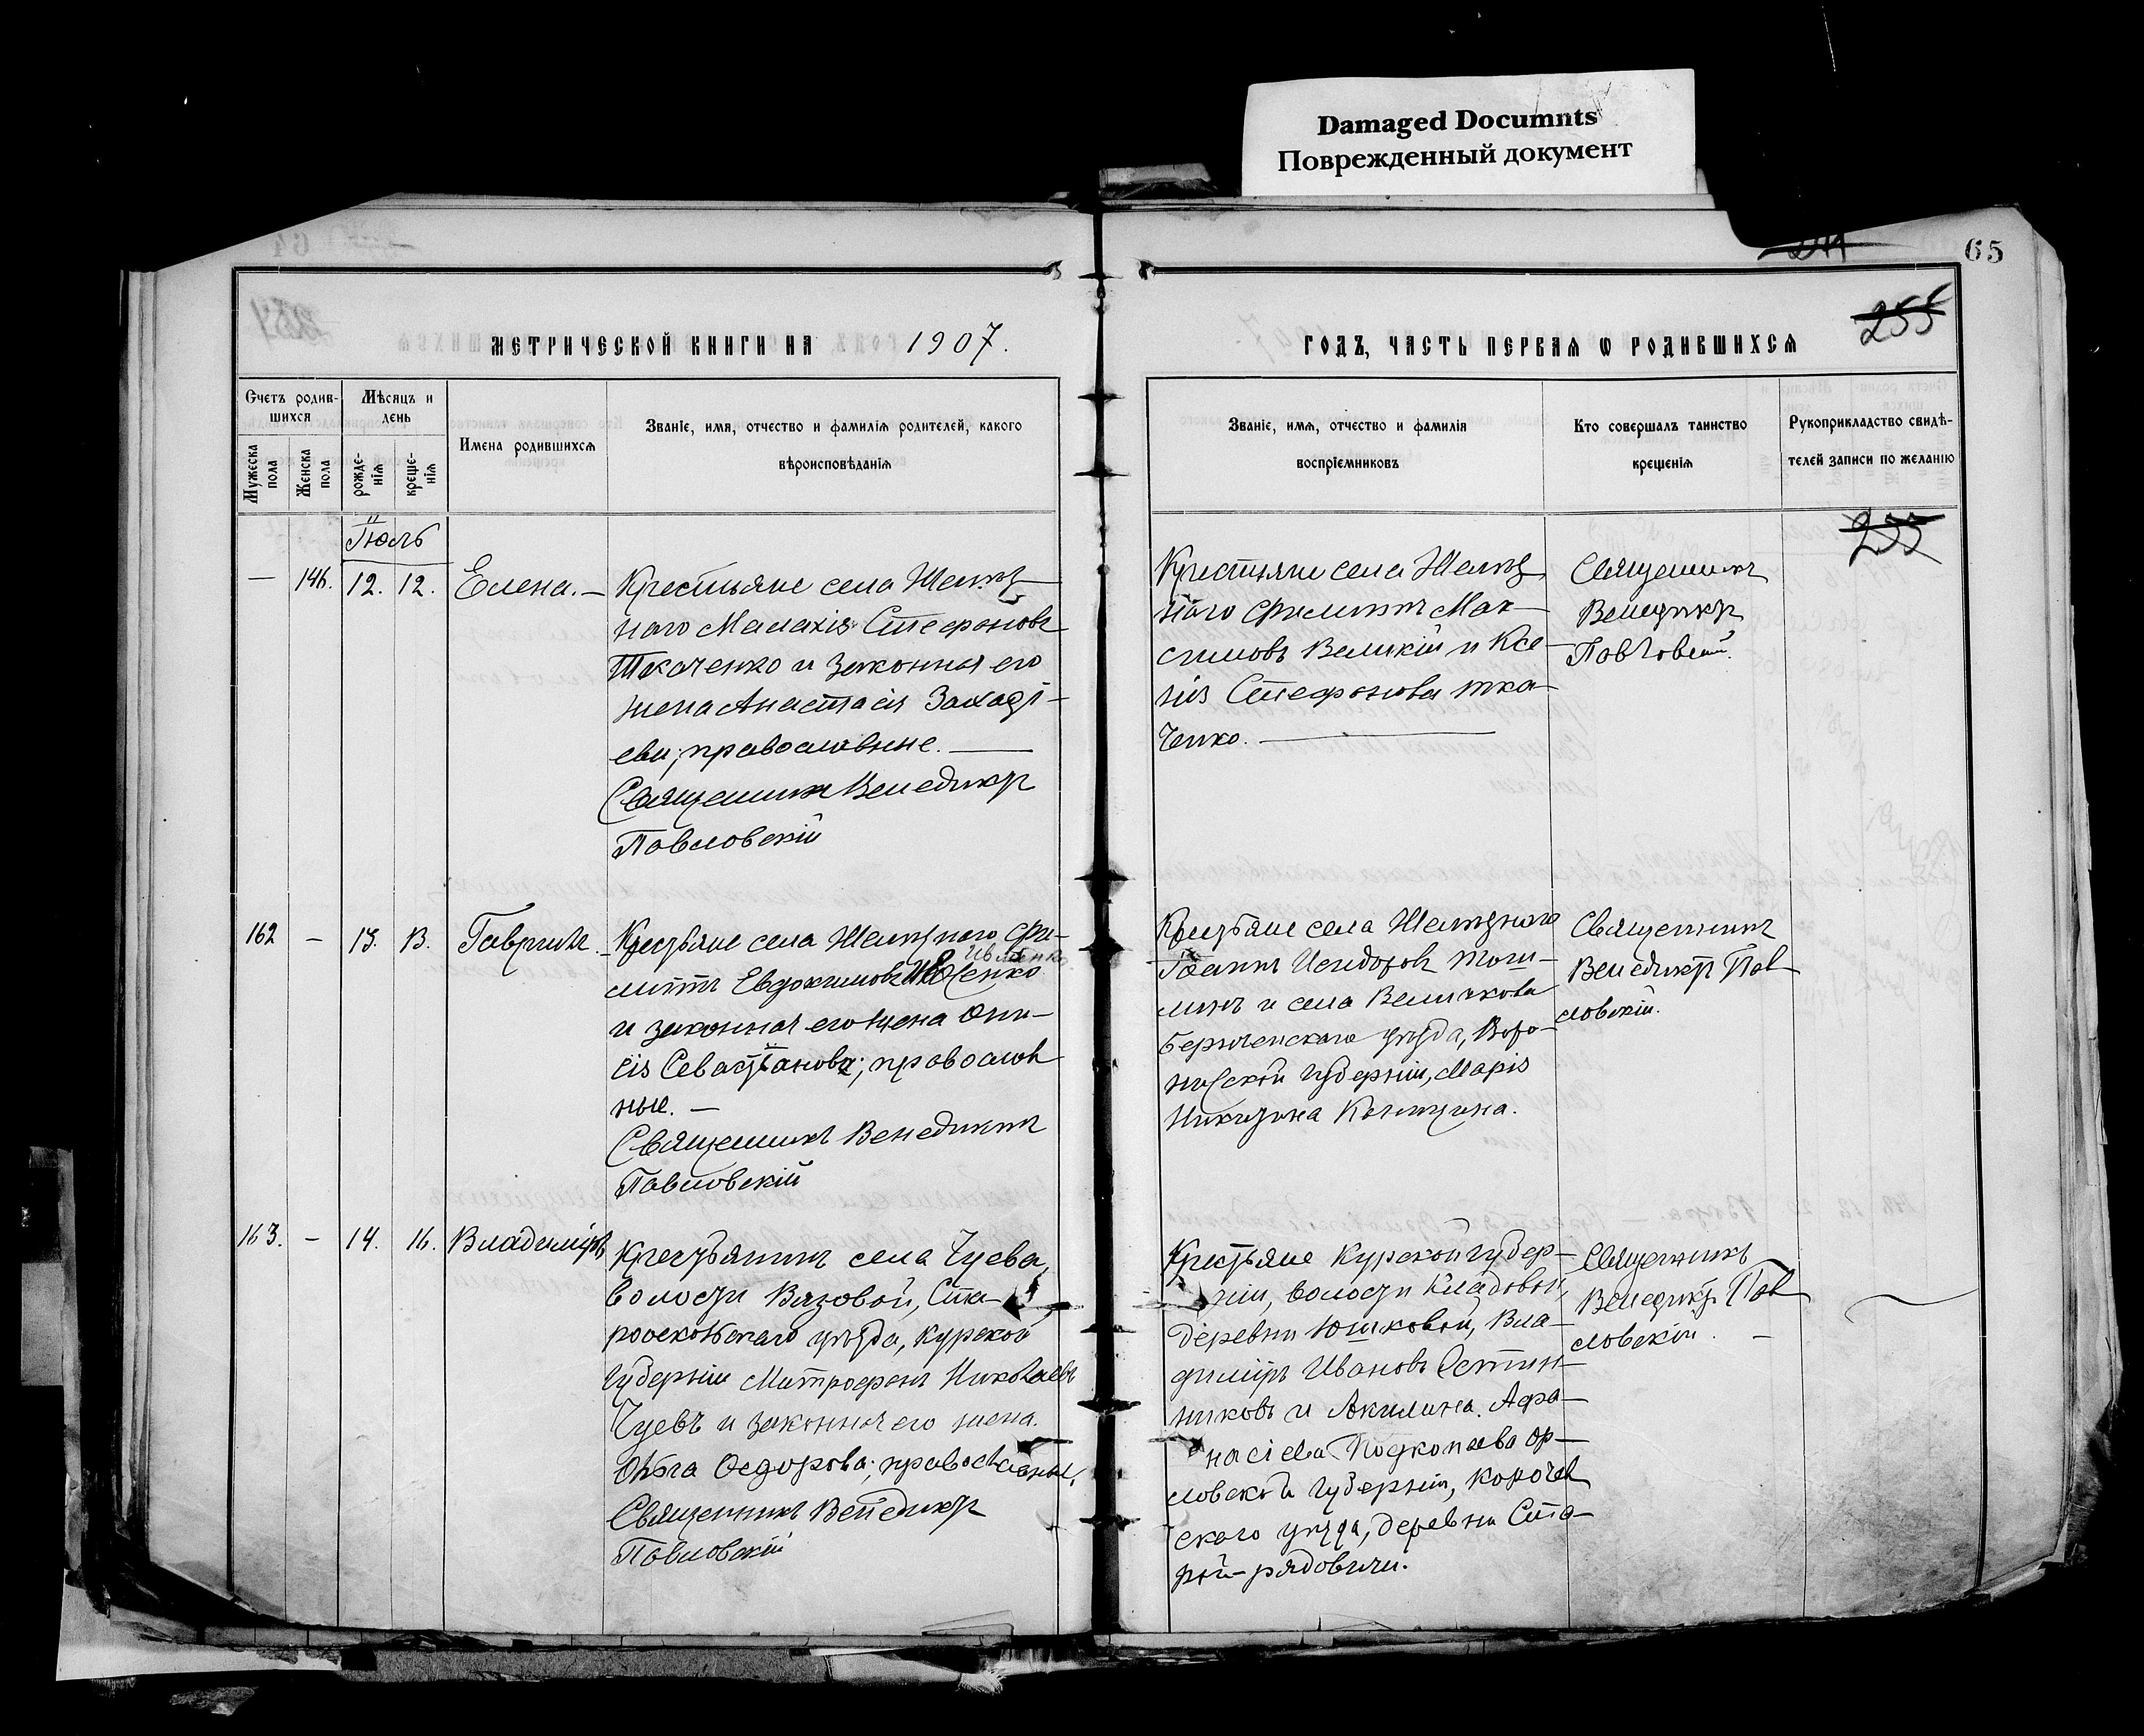 Damaged Documnts
Поврежденный документ
65
255
МЕТРИЧЕСКОЙ КНИГИ НА 1907.
ГОДЪ, ЧАСТЬ ПЕРВАЯ Ѡ РОДИВШИХСЯ
Счетъ родив-
шихся
Мужеска пола
Женска пола
Мѣсяцъ и
день
рожде-
нія
креще-
нія
Имена родившихся
Званіе, имя, отчество и фамилія родителей, какого
вѣроисповѣданія
Званіе, имя, отчество и фамилія
воспріемниковъ
Кто совершалъ таинство
крещенія
Рукоприкладство свидѣ-
телей записи по желанію
255
Іюль
— 146. 12. 12. Елена. —
Крестьяне села
наго Малахія Стефановъ
Ткаченко и законная его
жена Анастасія
ева; православные. —
Священникъ Венедиктъ
Павловскій
Крестьяне села
наго Филиппъ Мак-
симовъ Великій и Ксе-
нія Стефанова Тка-
ченко. —
Священникъ
Венедиктъ
Павловскій.
162 — 13. 13. Гавріилъ. —
Крестьяне села Фи-
Ивченко
липпъ Евдокимовъ
и законная его жена Они-
сія Севастіанова; православ
ные. —
Священникъ Венедиктъ
Павловскій
Крестьяне села
Іоаннъ Исидоровъ
и села
Бирюченскаго уѣзда, Воро-
нежской губерніи, Марія
Никитина
Священникъ
Венедиктъ Пав
ловскій.
163. — 14. 16. Владиміръ
Крестьянинъ села Чуева,
волости Вязовой, Ста-
рооскольскаго уѣзда, Курской
губерніи Митрофанъ Николаевъ
Чуевъ и законная его жена
Ольга Ѳедорова; православные,
Священникъ Венедиктъ
Павловскій
Крестьяне Курской губер-
ніи, волости Кладовой,
деревни Юшковой, Вла-
диміръ Ивановъ
никовъ и Акилина Афа-
насіева Подкопаева Ор-
ловской губерніи,
скаго уѣзда, деревни Ста-
рой-рядовичи.
Священникъ
Венедиктъ Пав
ловскій. —